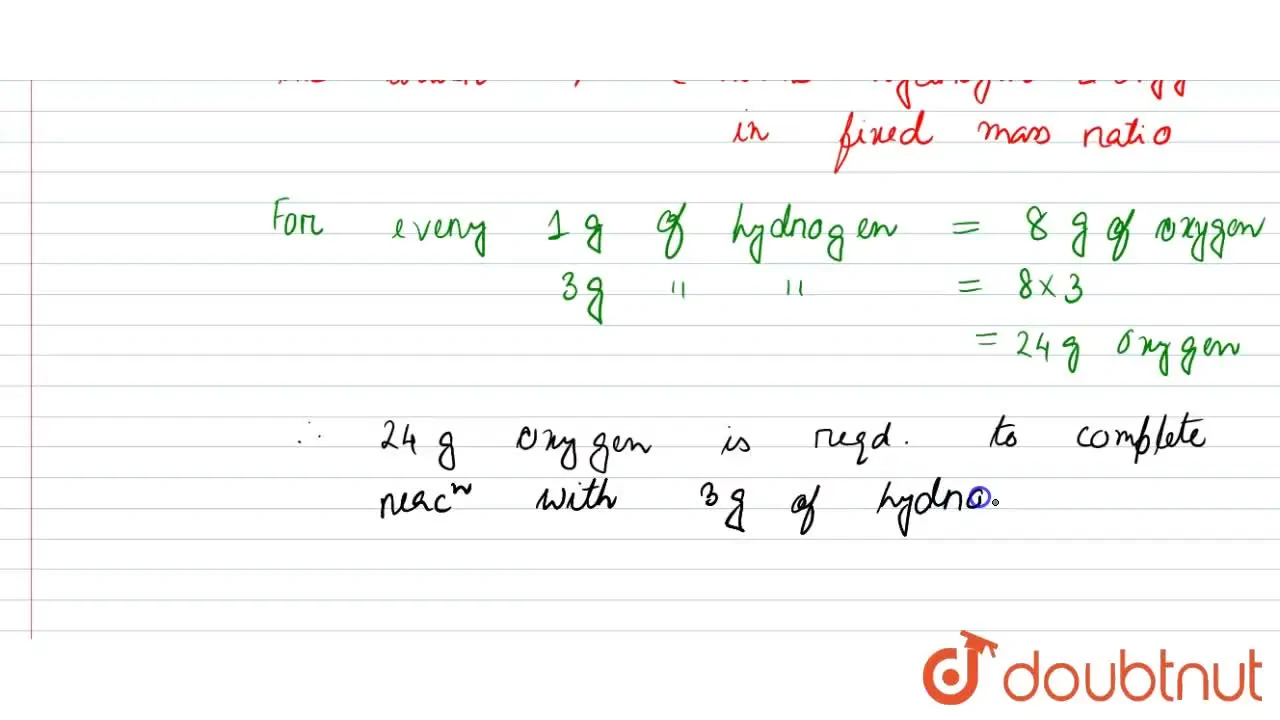 in fixed mass ratio
For every 1 g of hydrogen = 8 g of oxygen
3g " " = 8 × 3
= 24 g oxygen
∴ 24 g oxygen is reqd. to complete
reacⁿ with 3g of hydro
doubtnut